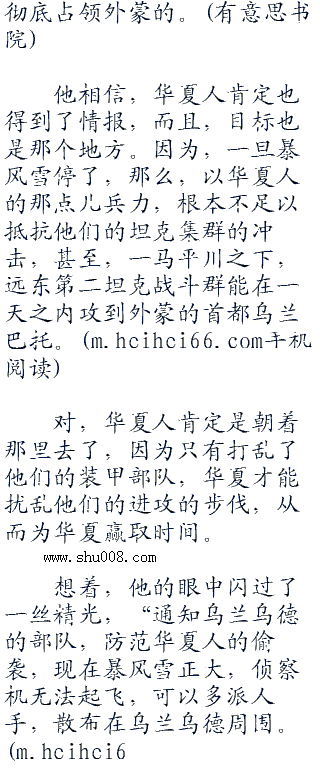 彻底占领外蒙的。(有意思书
院)
他相信，华夏人肯定也
得到了情报，而且，目标也
是那个地方。因为，一旦暴
风雪停了，那么，以华夏人
的那点儿兵力，根本不足以
抵抗他们的坦克集群的冲
击，甚至，一马平川之下，
远东第二坦克战斗群能在一
天之内攻到外蒙的首都乌兰
巴托。(m.hcihci66.com手机
阅读)
对，华夏人肯定是朝着
那里去了，因为只有打乱了
他们的装甲部队，华夏才能
扰乱他们的进攻的步伐，从
而为华夏赢取时间。
www.shu008.com
想着，他的眼中闪过了
一丝精光，“通知乌兰乌德
的部队，防范华夏人的偷
袭，现在暴风雪正大，侦察
机无法起飞，可以多派人
手，散布在乌兰乌德周围。
(m.hcihci6